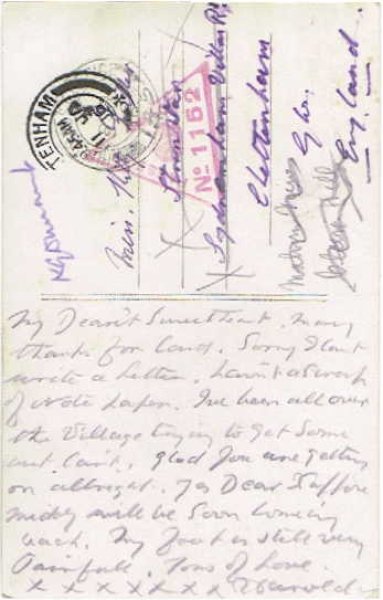 TENHAM
11 JU
16
No 1152
Miss.
Sydenham Villas Rd
Cheltenham
Glos.
England
My Dearest Sweetheart. many
thanks for Card. Sorry I cant
write a letter. havn't a scrap
of note paper. I've been all over
the Village trying to get some
but Can't. glad you are getting
on allright. yes Dear I suppose
will be soon coming
back. My foot is still very
Painfull. Tons of Love.
x x x x x x x x Harold